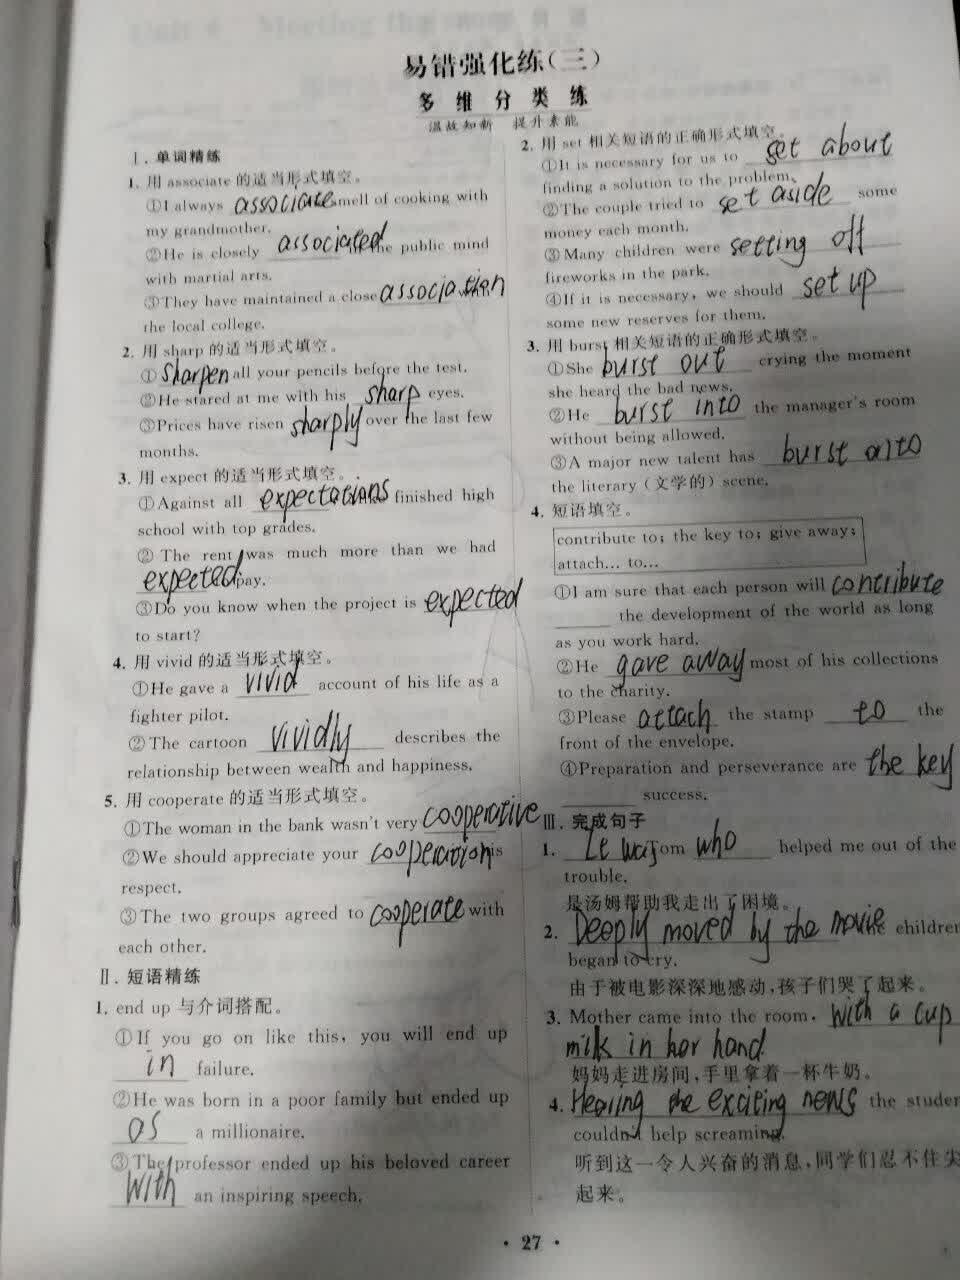 易错强化练(三)
多 维 分 类 练
温故知新 提升素能
Ⅰ. 单词精练
1. 用 associate 的适当形式填空。
①I always associate smell of cooking with
my grandmother.
②He is closely associated in the public mind
with martial arts.
③They have maintained a close association
the local college.
2. 用 sharp 的适当形式填空。
①Sharpen all your pencils before the test.
②He stared at me with his sharp eyes.
③Prices have risen sharply over the last few
months.
3. 用 expect 的适当形式填空。
①Against all expectations finished high
school with top grades.
② The rent was much more than we had
expected pay.
③Do you know when the project is expected
to start?
4. 用 vivid 的适当形式填空。
①He gave a vivid account of his life as a
fighter pilot.
②The cartoon vividly describes the
relationship between wealth and happiness.
5. 用 cooperate 的适当形式填空。
①The woman in the bank wasn't very cooperative
②We should appreciate your cooperation is
respect.
③The two groups agreed to cooperate with
each other.
Ⅱ. 短语精练
1. end up 与介词搭配。
①If you go on like this, you will end up
in failure.
②He was born in a poor family but ended up
as a millionaire.
③The professor ended up his beloved career
With an inspiring speech.
2. 用 set 相关短语的正确形式填空。
①It is necessary for us to set about
finding a solution to the problem.
②The couple tried to set aside some
money each month.
③Many children were setting off
fireworks in the park.
④If it is necessary, we should set up
some new reserves for them.
3. 用 burst 相关短语的正确形式填空。
①She burst out crying the moment
she heard the bad news.
②He burst into the manager's room
without being allowed.
③A major new talent has burst
the literary (文学的) scene.
4. 短语填空。
contribute to; the key to; give away;
attach... to...
①I am sure that each person will contribute
the development of the world as long
as you work hard.
②He gave away most of his collections
to the charity.
③Please attach the stamp to the
front of the envelope.
④Preparation and perseverance are the key
success.
Ⅲ. 完成句子
1. Tom who helped me out of the
trouble.
是汤姆帮助我走出了困境。
2. Deeply moved by the movie children
began to cry.
由于被电影深深地感动,孩子们哭了起来。
3. Mother came into the room, with a cup
milk in her hand
妈妈走进房间,手里拿着一杯牛奶。
4. Hearing the exciting news the studen
couldn't help screaming.
听到这一令人兴奋的消息,同学们忍不住尖
起来。
· 27 ·